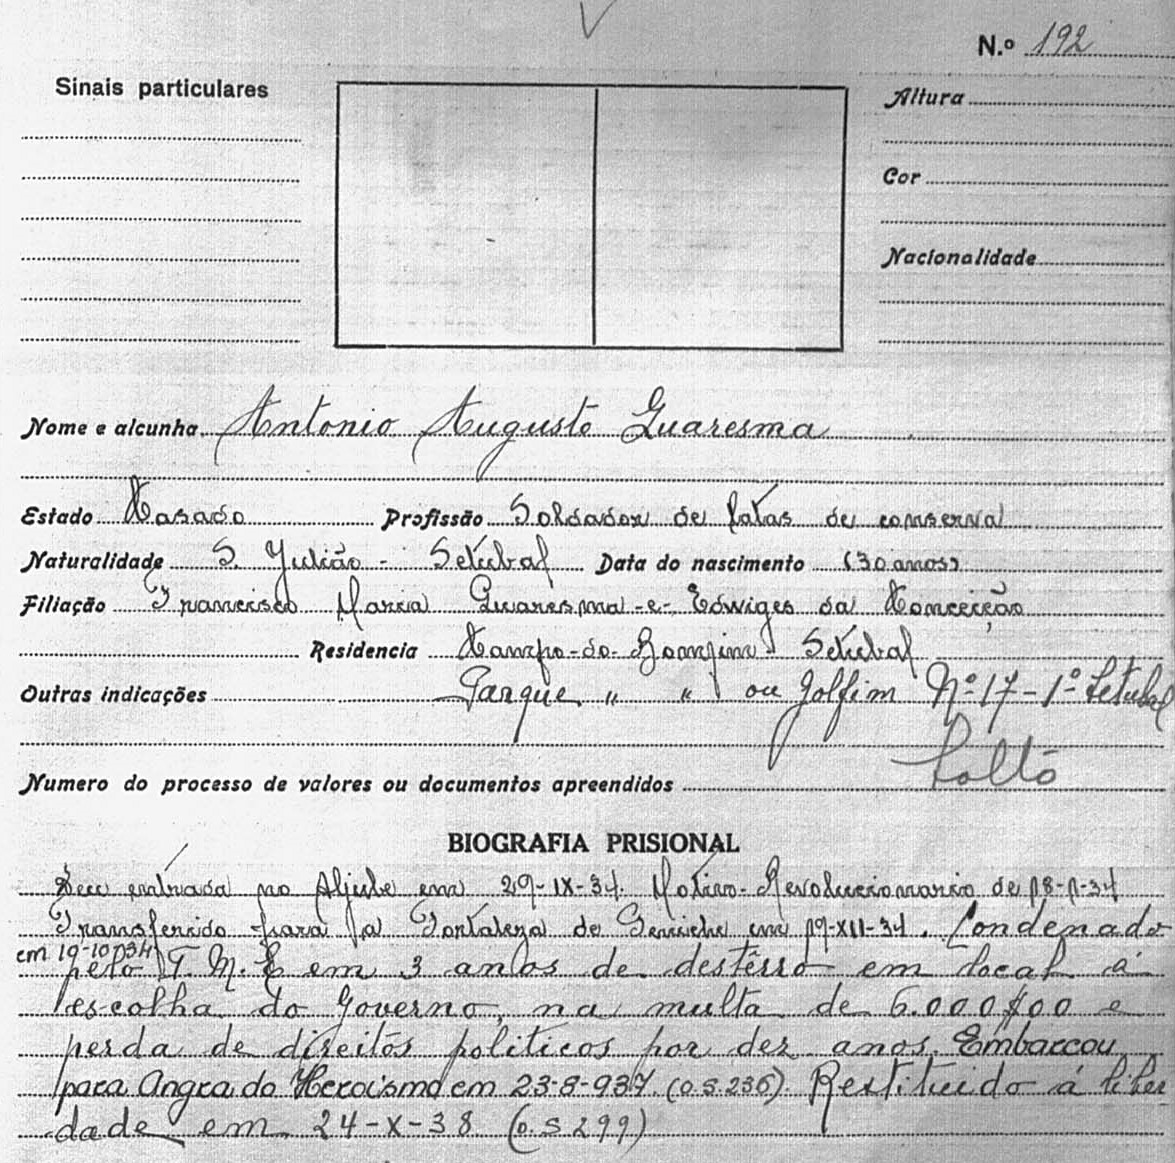 N.º 192
Sinais particulares
Altura
Cor
Nacionalidade
Nome e alcunha Antonio Augusto Quaresma
Estado Casado Profissão Soldador de latas de conserva
Naturalidade S. Julião - Setubal Data do nascimento (30 anos)
Filiação Francisco Maria Quaresma - e - Edwiges da Conceição
Residencia Campo-do-Bomfim Setubal
Outras indicações Parque " " ou Golfim Nº 17 - 1º Setubal
Solto
Numero do processo de valores ou documentos apreendidos
BIOGRAFIA PRISIONAL
Deu entrada no Aljube em 29-IX-34. Motivo-Revolucionario de 18-1-34
Transferido para a Fortaleza de Peniche em 19-XII-34. Condenado
em 19-10-934 pelo T. M. E em 3 anos de destêrro em local á
escolha do Governo, na multa de 6.000$00 e
perda de direitos politicos por dez anos. Embarcou
para Angra do Heroismo em 23-8-937. (O.S. 236). Restituido á liber
dade em 24-X-38 (O.S 299)